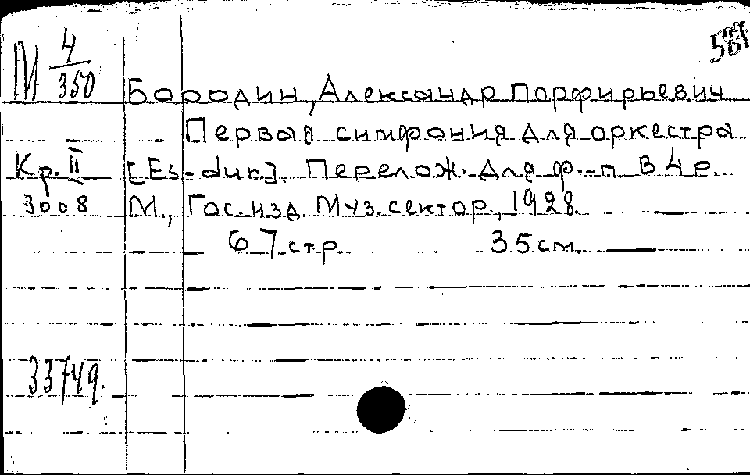 М 4/350
Бородин, Александр Порфирьевич
Первая симфония для оркестра
Кр. II [Es-dur]. Перелож. для ф.-п. в 4 р.
3008 М., Гос. изд. Муз. сектор, 1928.
67 стр. 35 см.
33749.